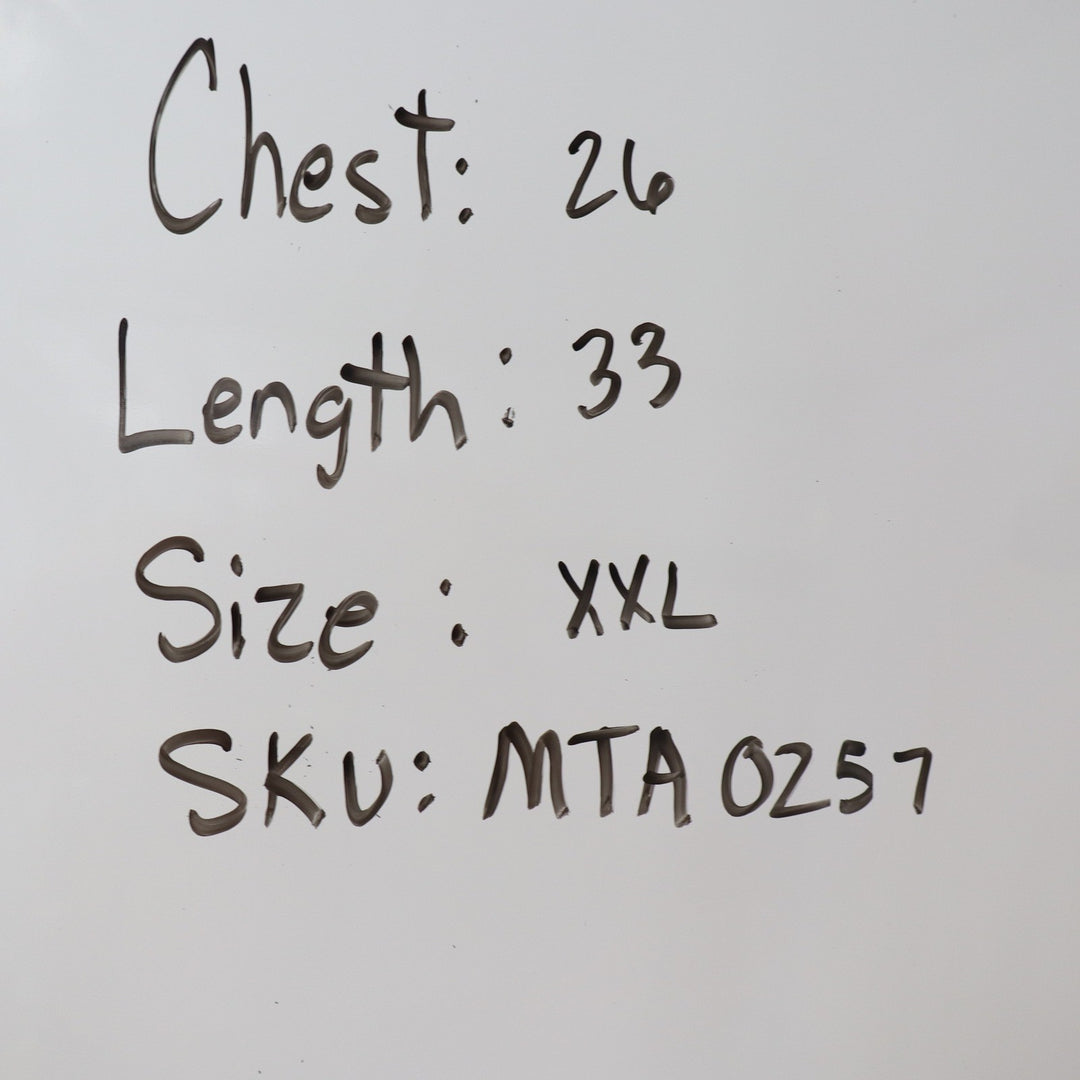 Chest: 26
Length: 33
Size: XXL
SKU: MTA 0257